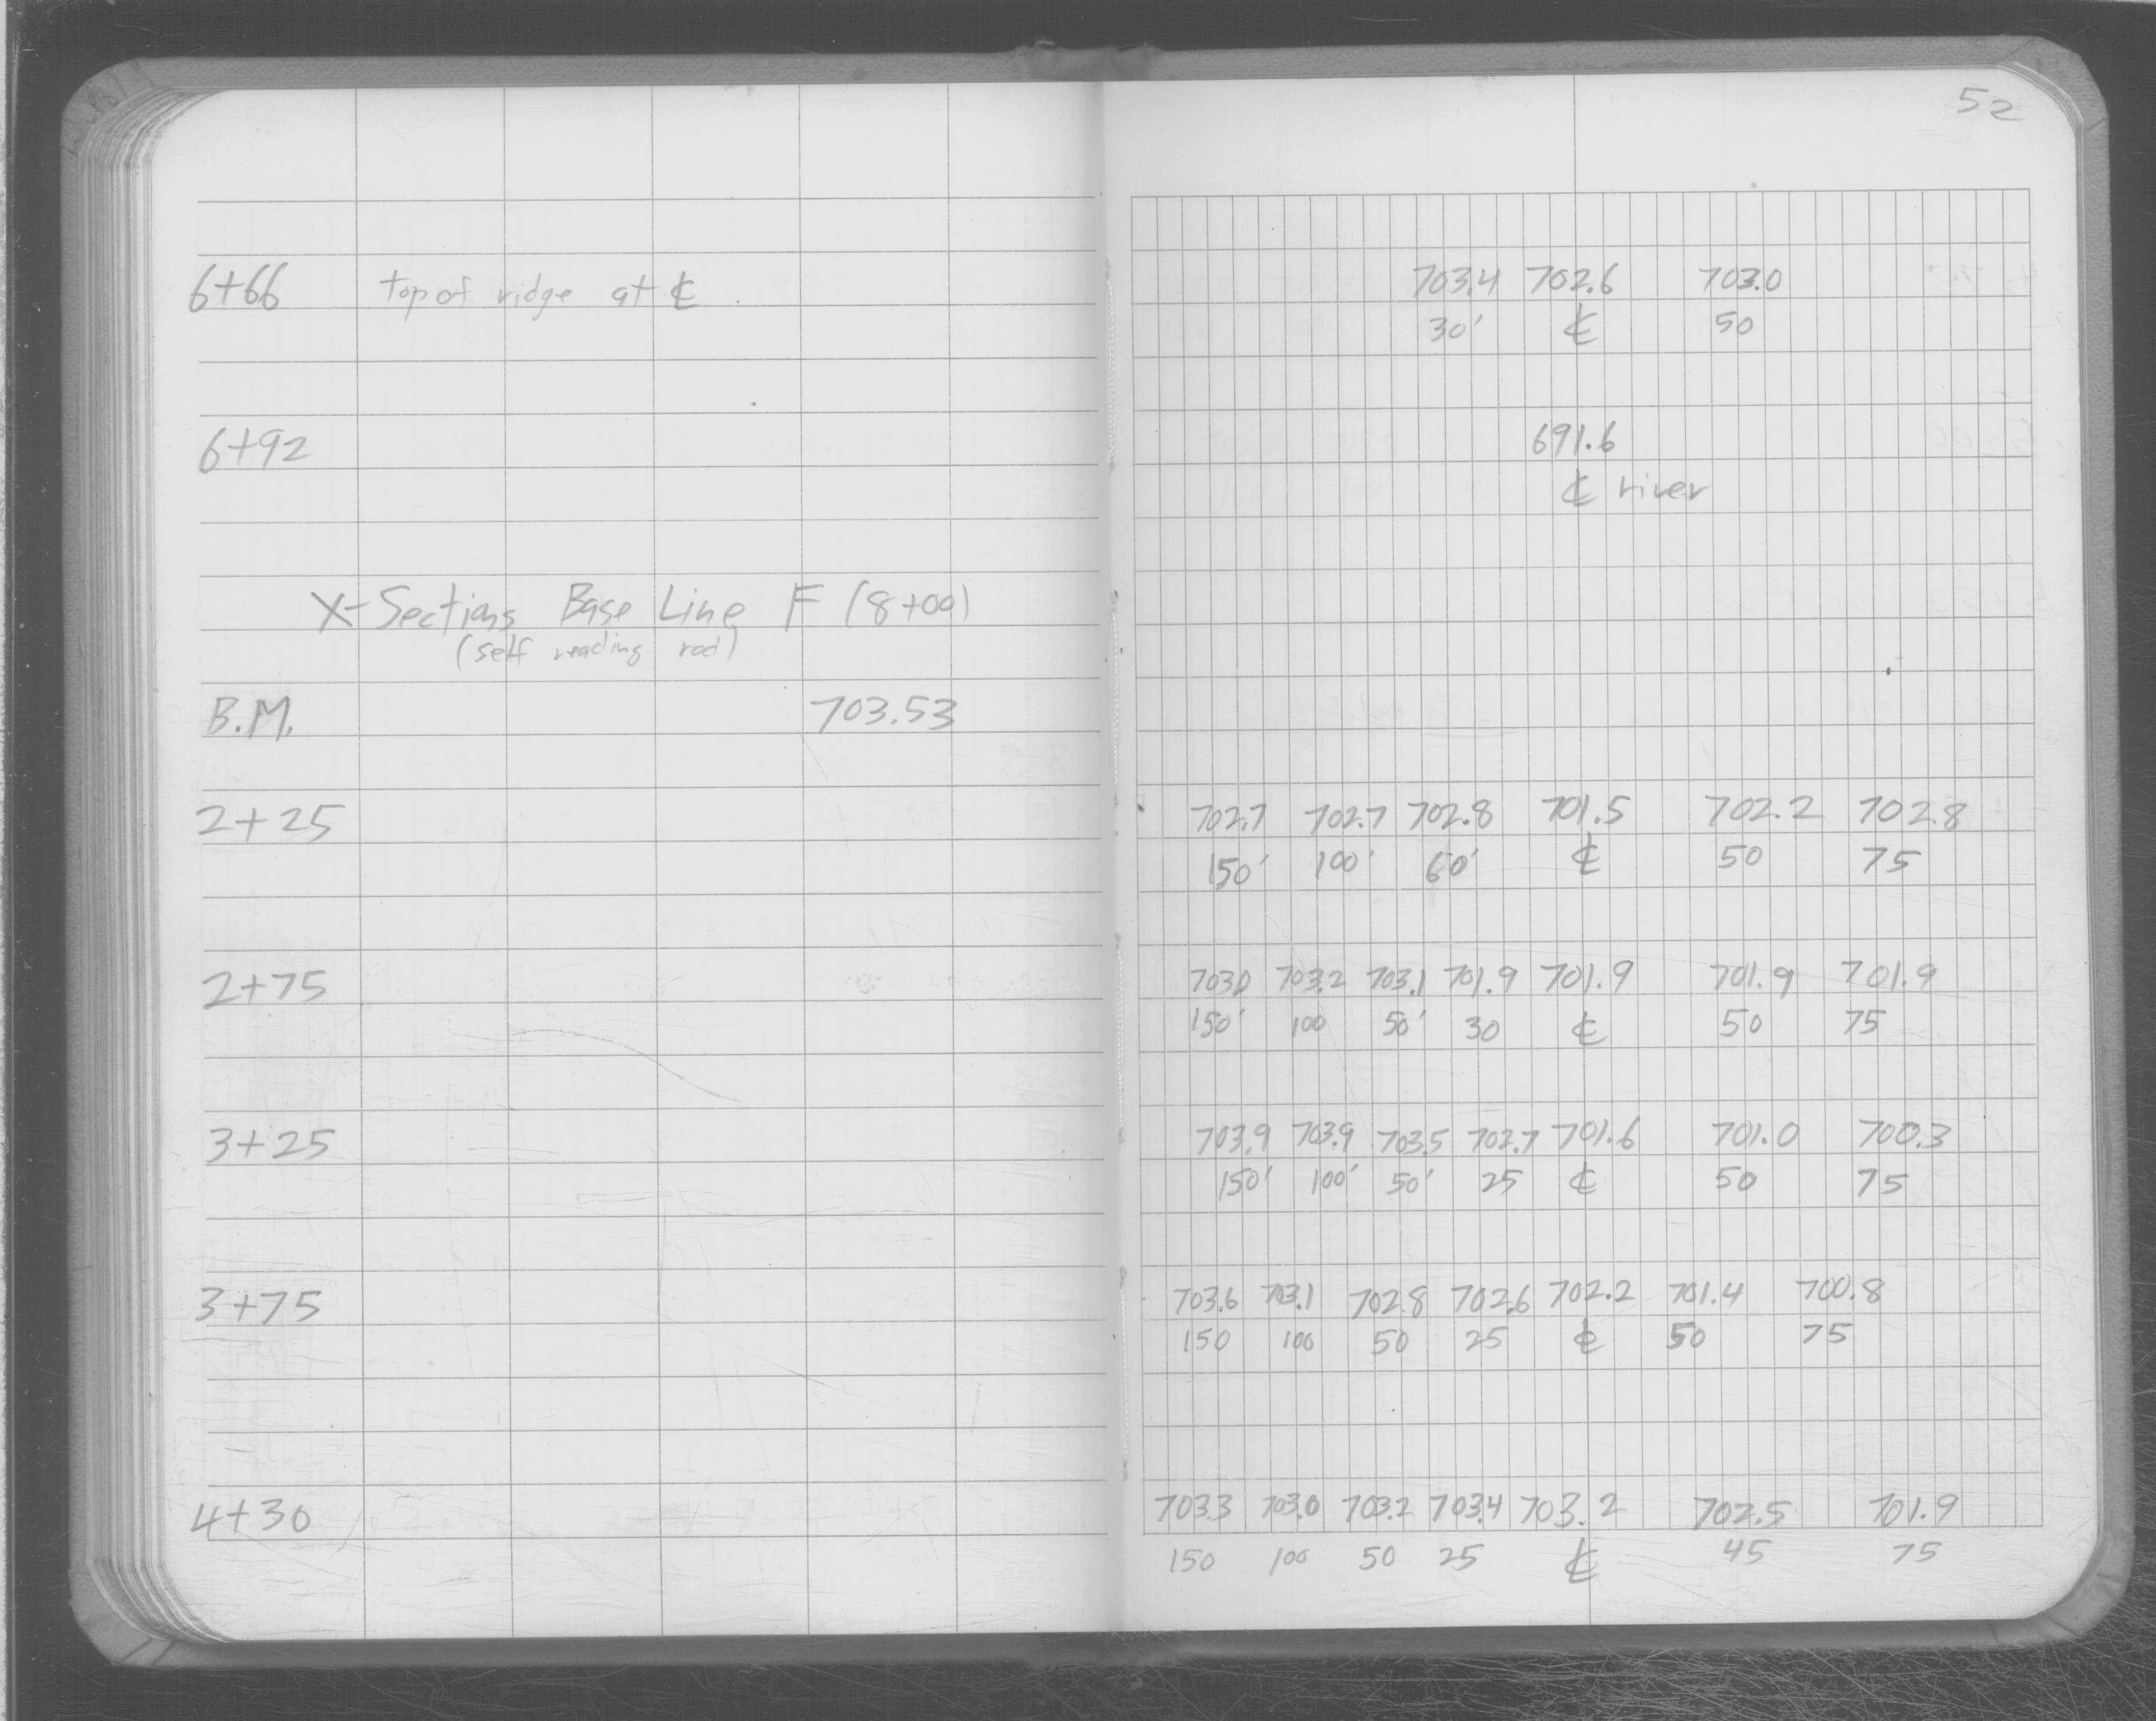 52
6+66 top of ridge at ℄ 703.4 702.6 703.0
30' ℄ 50
6+92 691.6
℄ river
X-Sections Base Line F (8+00)
(self reading rod)
B.M. 703.53
2+25 702.7 702.7 702.8 701.5 702.2 702.8
150' 100' 60' ℄ 50 75
2+75 703.0 703.2 703.1 701.9 701.9 701.9 701.9
150' 100 50' 30 ℄ 50 75
3+25 703.9 703.9 703.5 702.7 701.6 701.0 700.3
150' 100' 50' 25 ℄ 50 75
3+75 703.6 703.1 702.8 702.6 702.2 701.4 700.8
150 100 50 25 ℄ 50 75
4+30 703.3 703.0 703.2 703.4 703.2 702.5 701.9
150 100 50 25 ℄ 45 75